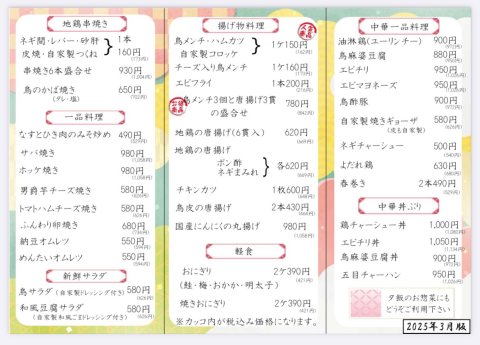 地鶏串焼き
ネギ間・レバー・砂肝
皮焼・自家製つくね
1本
160円
(173円)
串焼き6本盛合せ 930円
(1,004円)
鳥のかば焼き 650円
(タレ・塩) (702円)
一品料理
なすとひき肉のみそ炒め 490円
(529円)
サバ焼き 980円
(1,058円)
ホッケ焼き 980円
(1,058円)
男爵芋チーズ焼き 580円
(626円)
トマトハムチーズ焼き 580円
(626円)
ふんわり卵焼き 680円
(734円)
納豆オムレツ 550円
(594円)
めんたいオムレツ 550円
(594円)
新鮮サラダ
鳥サラダ(自家製ドレッシング付き) 580円
(626円)
和風豆腐サラダ 580円
(自家製和風ごまドレッシング付き) (626円)
揚げ物料理
鳥メンチ・ハムカツ
自家製コロッケ
1ケ150円
(162円)
チーズ入り鳥メンチ 1ケ160円
(173円)
エビフライ 1本200円
(216円)
鳥メンチ3個と唐揚げ3貫
の盛合せ
780円
(842円)
地鶏の唐揚げ(6貫入) 620円
(669円)
地鶏の唐揚げ
ポン酢
ネギまみれ
各620円
(669円)
チキンカツ 1枚600円
(648円)
鳥皮の唐揚げ 2本430円
(464円)
国産にんにくの丸揚げ 980円
(1,058円)
軽食
おにぎり 2ケ390円
(鮭・梅・おかか・明太子) (421円)
焼きおにぎり 2ケ390円
(421円)
※カッコ内が税込み価格になります。
中華一品料理
油淋鶏(ユーリンチー) 900円
(972円)
鳥麻婆豆腐 880円
(950円)
エビチリ 950円
(1,026円)
エビマヨネーズ 950円
(1,026円)
鳥酢豚 900円
(972円)
自家製焼きギョーザ 580円
(皮も自家製) (626円)
ネギチャーシュー 500円
(540円)
よだれ鶏 630円
(680円)
春巻き 2本490円
(529円)
中華丼ぶり
鶏チャーシュー丼 1,000円
(1,080円)
エビチリ丼 1,050円
(1,134円)
鳥麻婆豆腐丼 900円
(972円)
五目チャーハン 950円
(1,026円)
夕飯のお惣菜にも
どうぞご利用下さい
2025年3月版